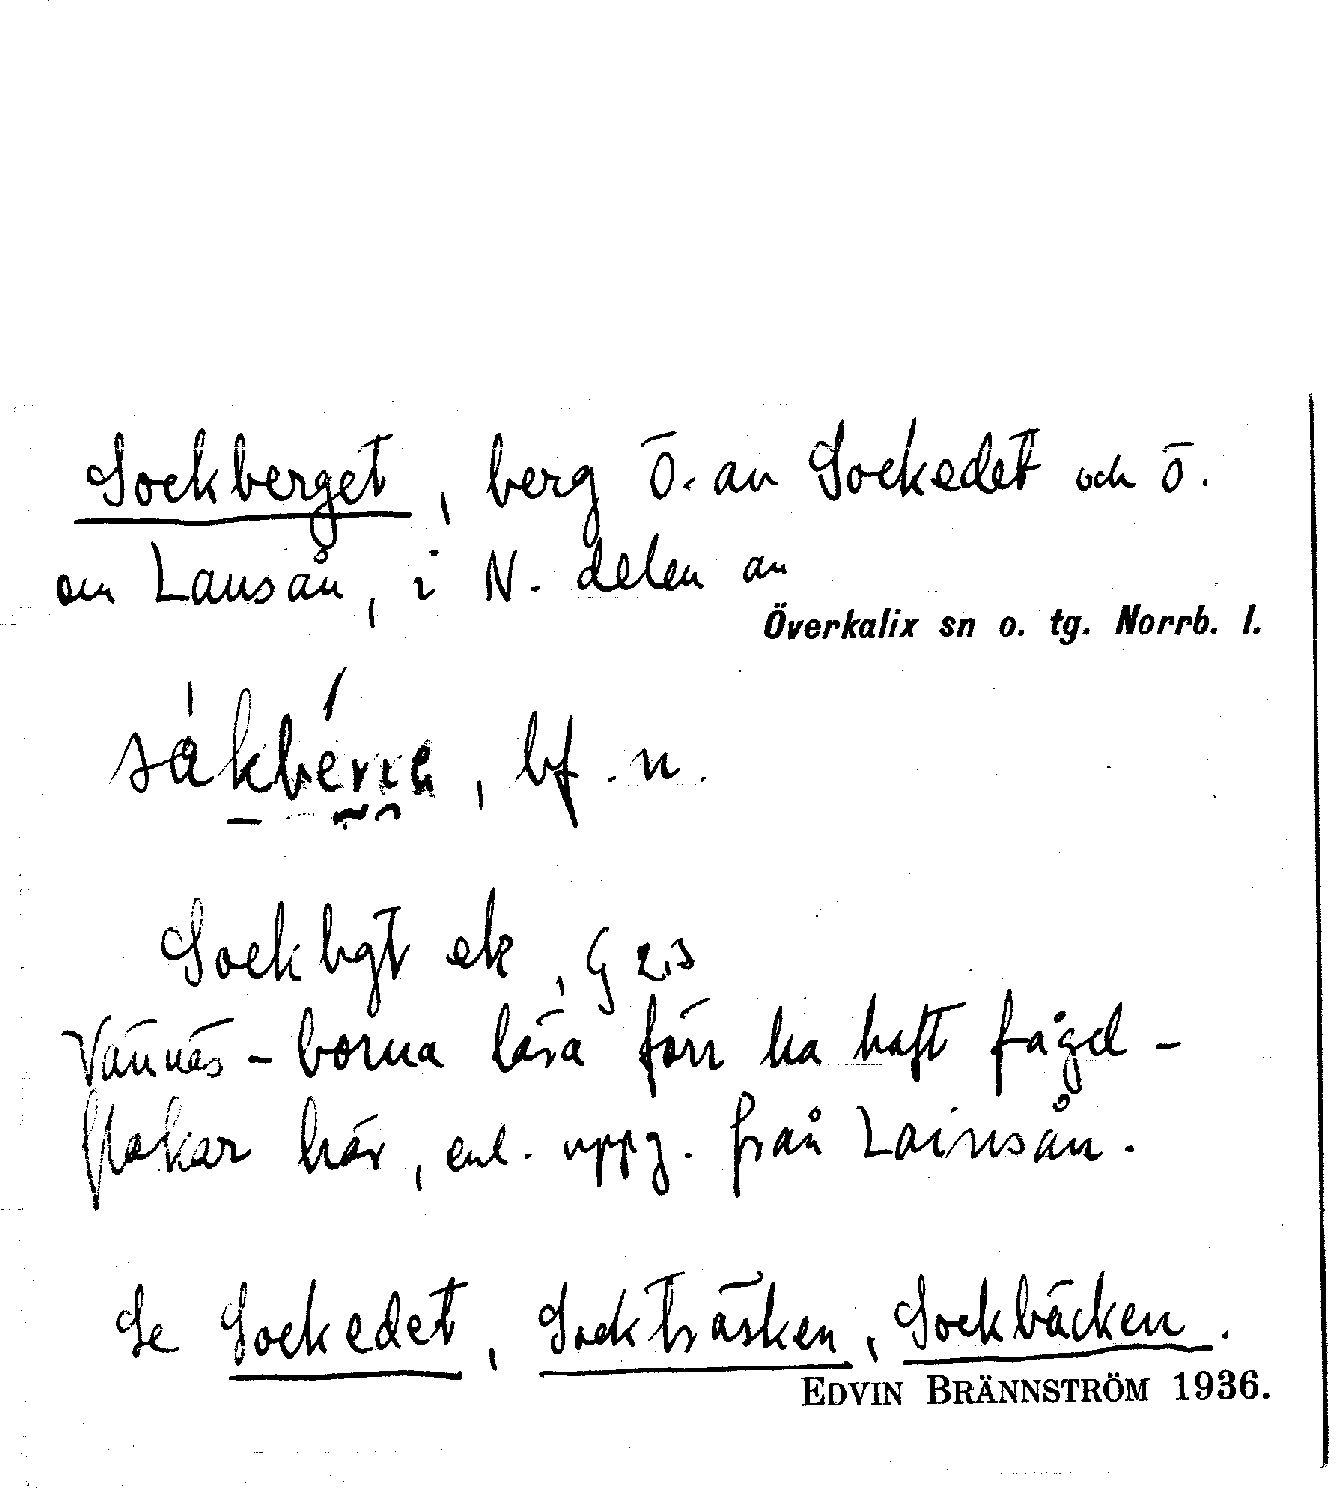 Sockberget, berg Ö. av Sockedet och Ö.
om Lansån, i N. delen av
Överkalix sn o. tg. Norrb. l.
bf. n.
Sockbgt ek, G 2,3
Vännäs-borna läsa förr ha haft fågel-
flakar här, enl. uppg. från Lainsån.
Se Sockedet, Sockträsken, Sockbäcken.
EDVIN BRÄNNSTRÖM 1936.